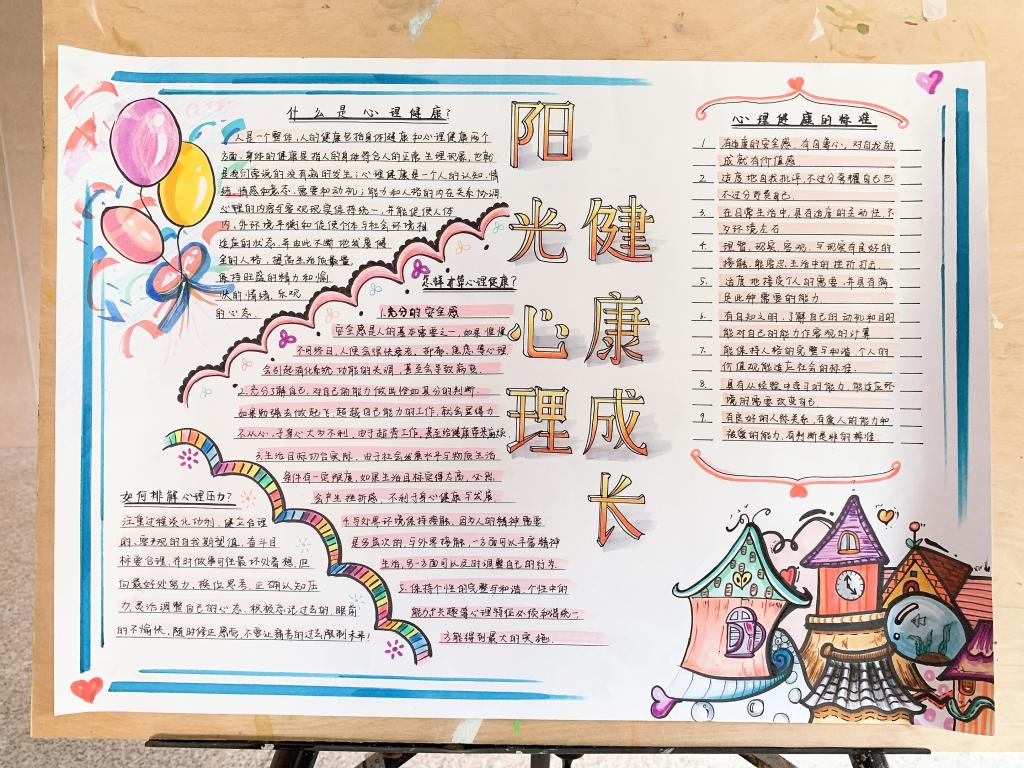 什么是心理健康?
人是一个整体,人的健康是指身体健康和心理健康两个
方面,身体的健康是指人的身体符合人的正常生理现象,也就
是我们常说的没有病的发生;心理健康是一个人的认知、情
绪、情感和意志、需要和动机;能力和人格的内在关系协调,
心理的内容与客观现实保持统一,并能促使人体
内、外环境平衡和促使个体与社会环境相
适应的状态,并由此不断地发展健
全的人格,提高生活质量,
保持旺盛的精力和愉
快的情绪、乐观
的心态.
怎样才算心理健康?
1.充分的安全感
安全感是人的基本需要之一,如果惶惶
不可终日,人便会很快衰老,抑郁、焦虑等心理
会引起消化系统功能的失调,甚至会导致病变.
2.充分了解自己,对自己的能力做出恰如其分的判断.
如果勉强去做起飞,超越自己能力的工作,就会显得力
不从心,于身心大为不利,由于超劳工作,甚至给健康带来麻烦.
3.生活目标切合实际,由于社会发展水平与物质生活
条件有一定限度,如果生活目标定得太高,必然
会产生挫折感,不利于身心健康与发展
4.与外界环境保持接触,因为人的精神需要
是多层次的,与外界接触,一方面可以丰富精神
生活,另一方面可以及时调整自己的行为
5.保持个性的完整与和谐 个性中的
能力,兴趣等心理特征必须和谐统一,
方能得到最大的实施.
如何排解心理压力?
注重过程淡化功利,建立合理
的、客观的自我期望值,奋斗目
标要合理,有时做事可往最坏处着想,但
向最好处努力,换位思考,正确认知压
力.灵活调整自己的心态.积极忘记过去的、眼前
的不愉快,随时修正
阳光心理
健康成长
心理健康的标准
1. 有适度的安全感,有自尊心,对自我的
成就有价值感
2. 适度地自我批评,不过分夸耀自己也
不过分苛责自己.
3. 在日常生活中,具有适度的主动性,不
为环境左右
4. 理智,现实,客观,与现实有良好的
接触,能容忍生活中的挫折打击.
5. 适度地接受个人的需要,并具有满
足此种需要的能力
6. 有自知之明,了解自己的动机和目的
能对自己的能力作客观的计算
7. 能保持人格的完整与和谐,个人的
价值观能适应社会的标准.
8. 具有从经验中学习的能力,能适应环
境的需要改变自己
9. 有良好的人际关系,有爱人的能力和
被爱的能力,有判断是非的标准.